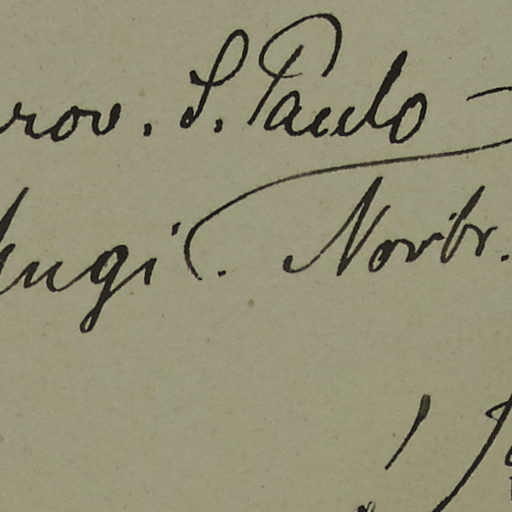 rov. S. Paulo
ugi. Novbr.